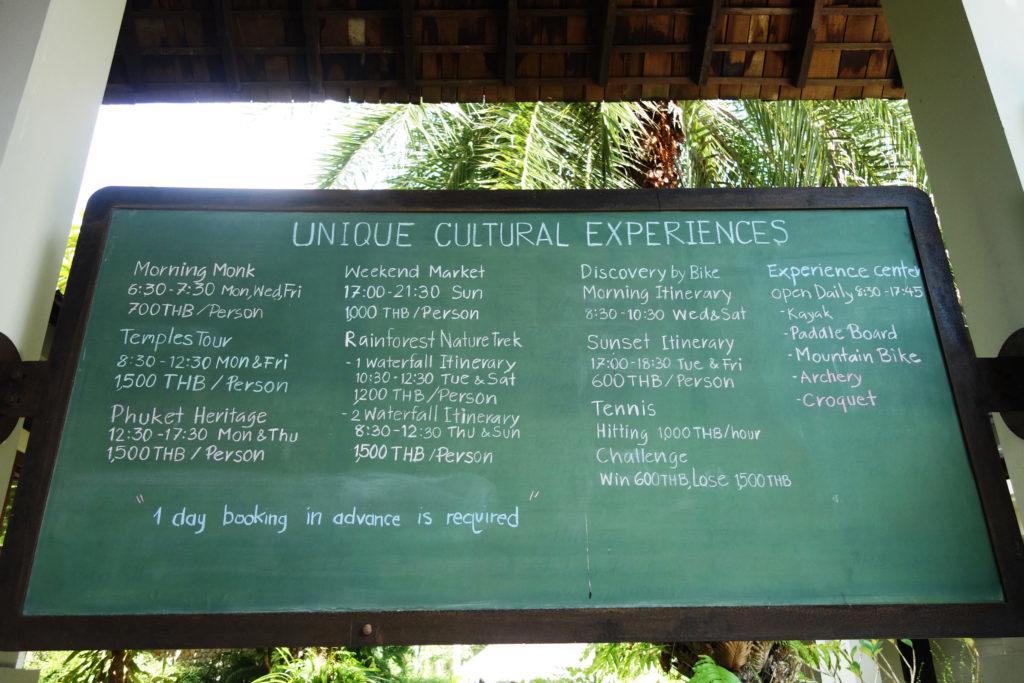 UNIQUE CULTURAL EXPERIENCES
Morning Monk
6:30-7:30 Mon,Wed,Fri
700THB/Person
Temples Tour
8:30-12:30 MON&Fri
1,500 THB/Person
Phuket Heritage
12:30-17:30 Mon&Thu
1,500THB/Person
Weekend Market
17:00-21:30 Sun
1,000 THB/Person
Rainforest Nature Trek
-1 Waterfall Itinerary
10:30-12:30 Tue & Sat
1,200 THB/Person
-2 Waterfall Itinerary
8:30-12:30 Thu & Sun
1,500 THB/Person
Discovery by Bike
Morning Itinerary
8:30-10:30 Wed&Sat
Sunset Itinerary
17:00-18:30 Tue & Fri
600THB/Person
Tennis
Hitting 1,000THB/hour
Challenge
Win 600THB,Lose 1,500THB
Experience center
open Daily 8:30-17:45
-Kayak
-Paddle Board
-Mountain Bike
-Archery
-Croquet
"1 day booking in advance is required"